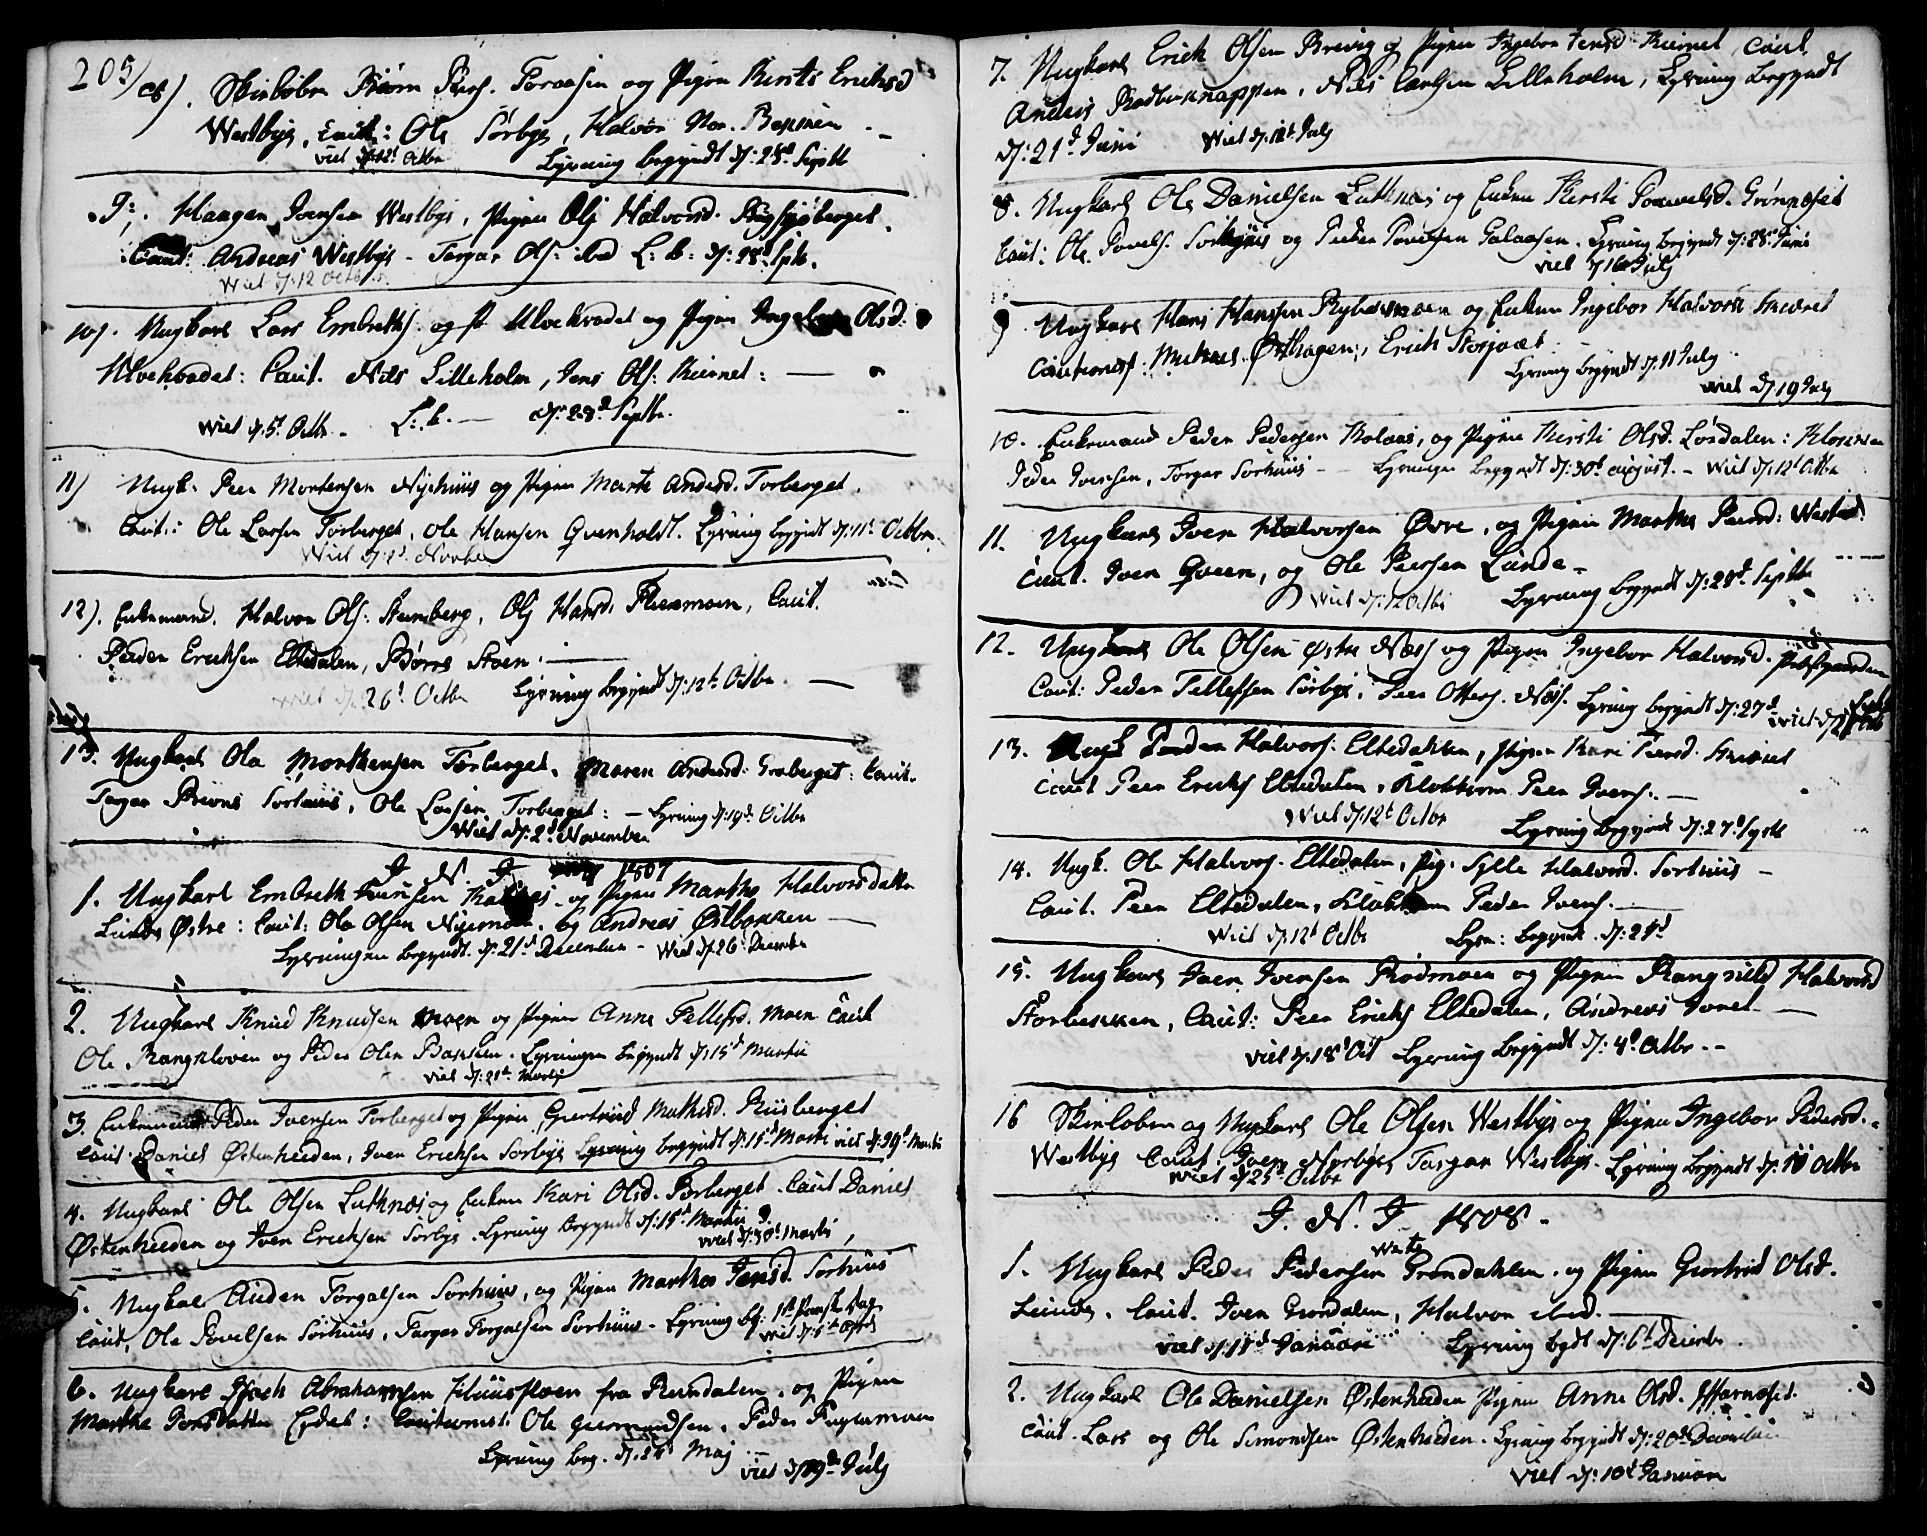 205/
8). Skiløber Biørn Peers. Toraasen og Pigen Kersti Eriksd
Westbye, Caut: Ole Sørbye, Halvor Nor. Backen
viet d: 12t Octbr Lysning begyndt d: 28d Septb
9. Haagen Iversen Westbye, Pigen Olj Halvorsd. Bugsjøberget.
Caut: Andreas Westbye - Torgar Ols: ibd L: b: d: 28d Sptb.
Wiet d: 12 Octbr
10). Ungkarl Lars Embreths. og P Ulvekvadet og Pigen Ingebor Olsd.
Ulvekvadet: Caut. Nils Lilleholm, Jens Ols: Kiernet:
wiet d. 5t Octbr - L: b. d: 28d Septbr.
11) Ungk. Peer Mortensen Nyehuus og Pigen Marte Andersd. Torberget
Caut: Ole Larsen Torberget, Ole Hansen Qvenholdt. Lysning begyndt d: 11t Octbr.
Wiet d: 2d Novbr
12). Enkemand. Halvor Ols. Stenberg, Olj Hansd. Flermoen, Caut.
Peder Eriksen Eltedalen, Børre Støen:
wiet d. 26t Octbr Lysning begyndt d: 12t Octbr.
13. Ungkarl Ola Morthensen Torberget, Maren Andersd. Graberget: Caut.
Torgar Sorhuus, Ole Larsen Torberget: - Lysning d: 19d Octbr
Wiet d: 2d November
I N I 1807
1. Ungkarl Embreth og Pigen Marthe Halvorsdatter
Lunde Østre: Caut: Ole Olsen Nyemoen, og Andreas Østbakken
Lysningen begyndt. d: 21d December - Wiet d: 26t Decembr
2. Ungkarl Knud Knudsen Moen og Pigen Anne Tellefsd. Moen Caut
Ole Rangkloven og Peder Olsen Bakken. Lysningen begyndt d: 15d Martii
viet d: 21t Martj
3. Enkemand Peder Iversen Torberget og Pigen Giertrud Mathisd. Riisberget
Caut: Daniel Østenheeden, Iven Ericksen Sorbye Lysning begyndt d: 15d Marti viet d: 29d Martii
4. Ungkarl Ole Olsen Lutknæs og Enken Kari Olsd. Torberget. Caut Daniel
Østenheeden og Iven Ericksen Sorbye. Lysning begyndt d: 15d Martii
wiet d: 30t Martii,
5. Ungkal Auden Torgalsen Sorhuus, og Pigen Marthe Jensd. Sorhuus
Caut, Ole Povelsen Sørhuus, Torger Torgalsen Sorhuus - Lysning bg: 1st Paaske dag
wiet d: 5t April
6. Ungkarl Isach Abrahamsen fra Rendalen, og Pigen
Marthe Tonsdatter Lydet: Cautionist: Ole Gurmundsen, Peder Fuglemoen
Lysning beg. d: Maj viet d 19d July
7. Ungkarl Erich Olsen Brevig og Pigen Ingebor Jensd Kiernet Caut
Anders Rødberknappen, Nils Carlsen Lilleholm, Lysning begyndt
d: 21d Juni Wiet d: 12t July
8. Ungkarl Ole Danielsen Lutknæs og Enken Kersti Powelsd. Grønnæset
Caut: Ole Povels. Sorhuus og Peder Povelsen Galaasen. Lysning begyndt d: 28d Juni
viet d 16 July
9 Ungkarl Hans Hansen og Enken Ingebor Halvorsd Kneeret
Cautionist: Østhagen, Erich Storsvæt:
Lysning begyndt d. 11 July
wiet d 19 July
10. Enkemand Peder Pedersen Kolaas, og Pigen Kersti Olsd. Lordalen: Klokkeren
Peder Iversen, Torger Sorhuus - Lysningen begyndt d: 30t august. - Wiet d: 12t Octbr
11. Ungkarl Iven Halvorsen Øvre, og Pigen Marthe Peersd: Westad.
Caut. Iven Qveen, og Ole Peersen Lunde -
Wiet d: 12 Octbr Lysning begyndt d: 28d Septbr
12. Ungkarl Ole Olsen Østre Næss og Pigen Ingebor Halvorsd. Præstgaarden
Caut: Peder Tellefsen Sorbye, Peer Otters. Næss. Lysning begyndt d: 27d Septb
wiet d 12 Octb
13. Ungk Peder Halvors. Eltedalen, Pigen Kari Peersd. Kneeret
Caut Peer Ericks Eltedalen, Klokkeren Peer Ivers.
Wiet d: 12t Octbr Lysning begyndt d: 27d Septb
14. Ungk. Ole Halvors. Eltedalen, Pig. Sylle Halvorsd. Sorhuus -
Caut. Peer Eltedalen, Klokkeren Peder Ivers.
Wiet d: 12t Octbr Lysn: begyndt. d: 27d
15. Ungkarl Iven Iversen Rødmoen og Pigen Rangnild Halvorsd
Storbekken, Caut: Peer Ericks Eltedalen, Andreas
viet d: 18d Oct Lysning begyndt d: 4d Octbr. -
16 Skieløber og Ungkarl Ole Olsen Westbye og Pigen Ingebor Pedersd.
Westbye Caut. Iven Nyrbye Torgar Westbye. Lysning begyndt d: 11 Octbr
Wiet d 25t Octbr
I. N. I 1808 -
1. Ungkarl Peder Pedersen Grøndahlen. og Pigen Giertrud Olsd.
Lunde, Caut. Iven Grøndalen, Halvor ibid.
viet d: 11d Januari Lysning bgdt d: 6t Decembr
2. Ungkarl Ole Danielsen Østenheden Pigen Anne Olsd. Hornæset.
Caut. Lars og Ole Simondsen Østenheeden. Lysning begyndt d: 20d December
viet d: 10d Januari